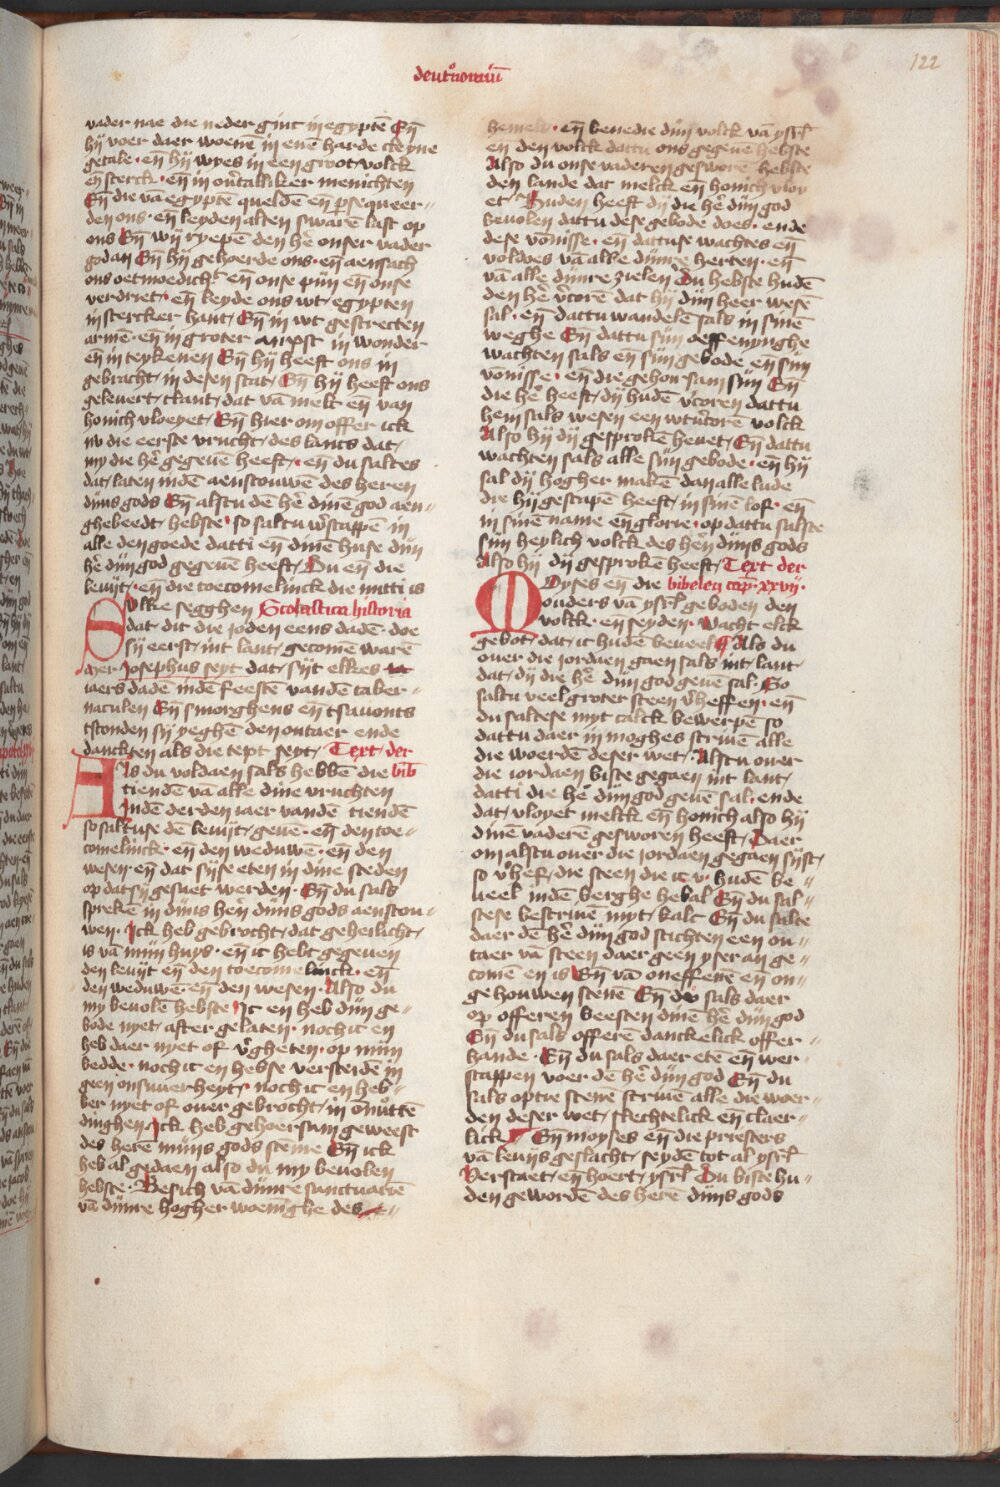 deut'onomiū
122
vader nae die neder ginc in egyptē Eñ
hij voer daer woenē in enē harde cleyne
getale · eñ hij wyes in een groot volck
eñ sterck · eñ in ontallliker menichten
Eñ die vā egyptē queldē eñ ꝑsequeer-
den ons · eñ leyden allen swarē last op
ons Eñ wij ryepē den hē onser vader
god an Eñ hij gehoerde ons · eñ aensach
ons oetmoedich · eñ onse pijn eñ onse
verdriet · eñ leyde ons wt egypten
in stercker hant / Eñ in wt gestrecten
armē · eñ in groter anxst in wonder
eñ in teykenen Eñ hij heeft ons in
gebracht / in desen stat / Eñ hij heeft ons
geleuert / tlant / dat vā melc eñ van
honich vloeyet / Eñ hier om offer ick
nv die eerste vrucht / des lants dat /
my die hē gegeuē heeft / · eñ du saltes
dat / laten indē aenscouwen des heren
dijns gods Eñ alstu dē hē dinē god aen-
ghebeedt hebste · so saltu wstappē in
alle den goede datti eñ dinē huse dijn
hē dijn god gegeuē heeft / Du eñ die
leuijt / · eñ die toecomelinck die mitti is
Sulke segghen Scolastica historia
dat / dit die joden eens dadē · doe
sij eerst / int lant / gecomē warē
aer Josephus seyt dat / sijt elkes
iaers dadē indē feeste vandē taber-
naculen Eñ smorghens eñ tsauonts
tstonden sij yeghē den outaer ende
danckten als die text seyt / Text der
bib
Als du voldaen sals hebbē die
tiendē vā alle dine vruchten
Indē derden iaer vandē tiendē
so saltuse dē leuijt / geuē · eñ den toe-
comelinck · eñ den weduwē · eñ den
wesen · eñ dat sijse eten in dine steden
op dat sij gesaet werden · Eñ du sals
sprekē in dinis hēn dijns gods aenscou-
wen · Ick heb gebrocht / dat geheilicht /
is vā mijn huys · eñ ic hebt gegeuen
den leuijt eñ den toecomelinck · eñ
den weduwē · eñ den wesen · Also du
my beuolē hebste Ic en heb dijn ge-
bode nyet / after gelaten · noch ic en
heb daer nyet of v'gheten · op mijn
bedde · noch ic en hebse versceidē in
geen onsuuerheyt / noch ic en heb-
ber nyet of ouer gebrocht / in onuttē
dinghen Ick heb gehoersam geweest
des herē mijns gods stēme Eñ ick
heb al gedaen also du my beuolen
hebste · Besich vā dijnre sanctuariē
vā dijnre hogher woenīghe des
hemels · eñ benedie dijn volck vā ysrl'
eñ den volck dattu ons gegeuē hebste
Also du onse vaderen gesworē hebste
den lande dat melck eñ honich vloy
et / Huden heeft dij die hē dijn god
beuolen dattu dese gebode does · ende
dese vōnisse · eñ dattuse wachtes eñ
voldoes vā alle dijnre herten · eñ
vā alle dijnre zielen Du hebste hudē
den hē v'corē dat hij dijn heer wesē
sal · eñ dattu wandelē sals in sinē
weghe Eñ dattu sijn oeffenynghe
wachten sals eñ sijn gebode · eñ sijn
vōnisse · eñ die gehorsam sijn Eñ
die hē heeft / dij hudē v'coren dattu
hem sals wesen een wtv'corē volck
Also hij dij gesprokē heuet / Eñ dattu
wachten sals alle sijn gebode · eñ hij
sal dij hogher makē dan alle lude
die hij gescapē heeft / in sinē lof · eñ
in sinē name eñ glorie · op dattu salste
sijn heylich volck des hēn dijns gods
Also hij dij gesprokē heeft / Text der
Moyses eñ die bibelen cap̄ · xxvij ·
ouders vā ysrl' geboden den
volck · eñ seyden · Wacht elck
gebot / dat / ic hudē beueel Als du
ouer die iordaen gaen sals int / lant /
dat / dij die hē dijn god geuē sal · So
saltu veel groter steen v'heffen · eñ
du saltese myt calck bewerpē so
dattu daer in moghes scriuē alle
die woerdē deser wet / Alstu ouer
die iordaen biste gegaen int lant /
datti die hē dijn god geuē sal · ende
dat / vloyet melck eñ honich also hij
dinē vaderē gesworen heeft / Daer
om alstu ouer die iordaen gegaen sijst /
so v'hef / die steen die ic v · hudē be-
ueel indē berghe hebal Eñ du sal-
stese bescriuē myt / kalc Eñ du salte
daer dē hē dijn god stichten een ou-
taer vā steen daer geen yser an ge-
comē en is Eñ vā oneffenē eñ on-
gehouwen stenē Eñ du sals daer
op offeren beesten dinē hē dijn god
Eñ du sals offerē danckelick offer-
hande · Eñ du sals daer etē eñ wer-
scappen voer dē hē dijn god Eñ du
sals op die stenē scriuē alle die woer-
den deser wet / slechtelick eñ claer-
lick Eñ moyses eñ die priesters
vā leuijs geslacht / seydē tot al ysrl'
Verstaet / eñ hoert / ysrl' Du biste hu-
den gewordē des herē dijns gods